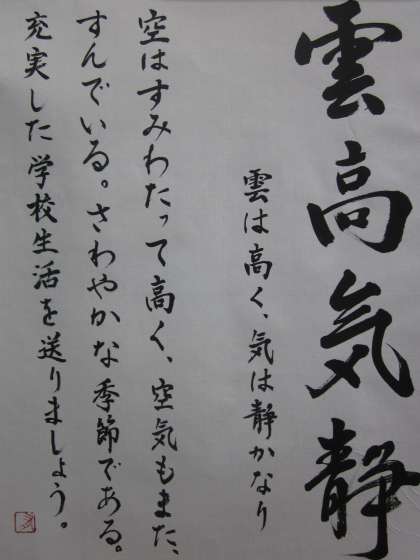 雲高気静
雲は高く、気は静かなり
空はすみわたって高く、空気もまた、
すんでいる。さわやかな季節である。
充実した学校生活を送りましょう。